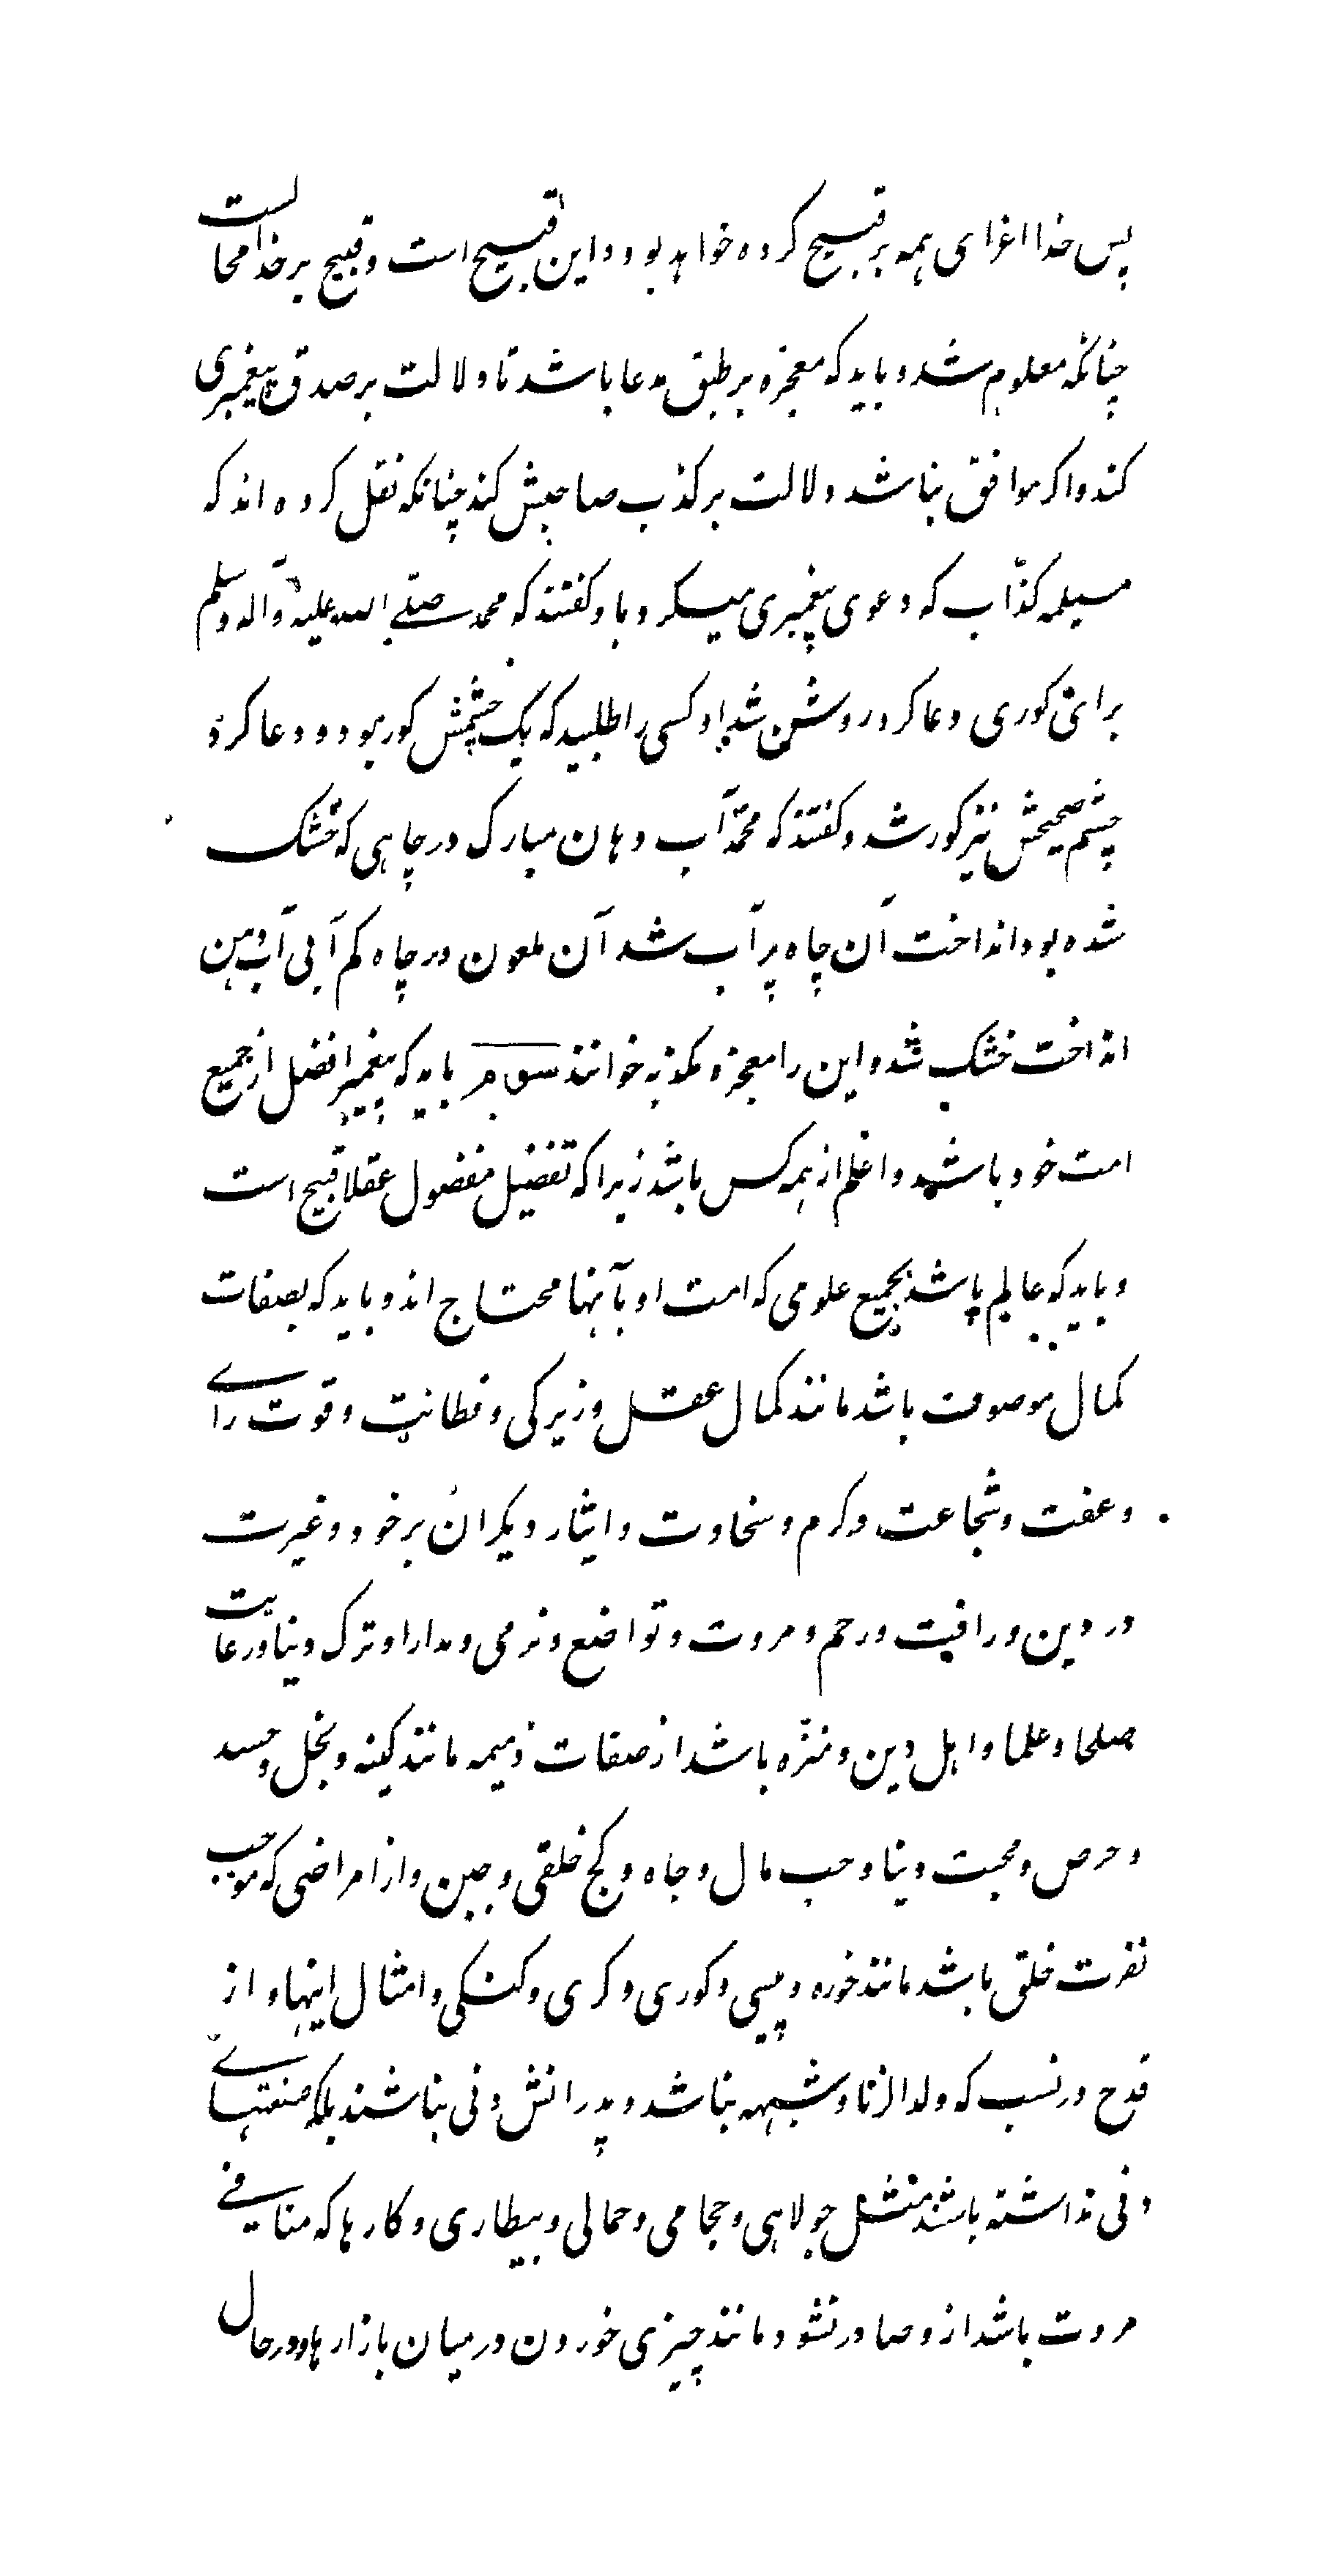 پس خدا اغرای همه بر قبیح کرده خواهد بود و این قبیح است و قبیح بر خدا محالست
چنانکه معلوم شد و باید که معجزه بر طبق مدعا باشد تا دلالت بر صدق پیغمبری
کند و اکر موافق نباشد دلالت بر کذب صاحبش کند چنانکه نقل کرده اند که
مسیلمه کذّاب که دعوی پیغمبری میکرد باو کفتند که محمد صلّے الله علیه وآله وسلم
برای کوری دعا کرد روشن شد او کسی را طلبید که یک چشمش کور بود و دعا کرد
چشم صحیحش نیز کور شد و کفتند که محمّد آب دهان مبارک در چاهی که خشک
شده بود انداخت آن چاه پر آب شد آن ملعون در چاه کم آبی آب دهن
انداخت خشک شد و این را معجزه مکذبه خوانند سوم باید که پیغمبر افضل از جمیع
امت خود باشد و اعلم از همه کس باشد زیرا که تفضیل مفضول عقلا قبیح است
و باید که عالم باشد بجمیع علومی که امت او بآنها محتاج اند و باید که بصفات
کمال موصوف باشد مانند کمال عقل و زیرکی و فطانت و قوت راے
و عفت و شجاعت و کرم و سخاوت و ایثار دیکران بر خود و غیرت
در دین و رافت و رحم و مروت و تواضع و نرمی و مدارا و ترک دنیا و رعایت
صلحا و علما و اهل دین و منزّه باشد از صفات ذمیمه مانند کینه و بخل و حسد
و حرص و محبت دنیا و حب مال و جاه و کج خلقی و جبن و از امراضی که موجب
نفرت خلق باشد مانند خوره و پیسی و کوری و کری و کنکی و امثال اینها و از
قدح در نسب که ولد الزنا و شبهه نباشد و پدرانش دنی نباشند بلکه صنعتهاے
دنی نداشته باشند مثل جولاهی و حجامی و حمالی و بیطاری و کارها که منافے
مروت باشد از و صادر نشود مانند چیزی خوردن در میان بازارها و در حال